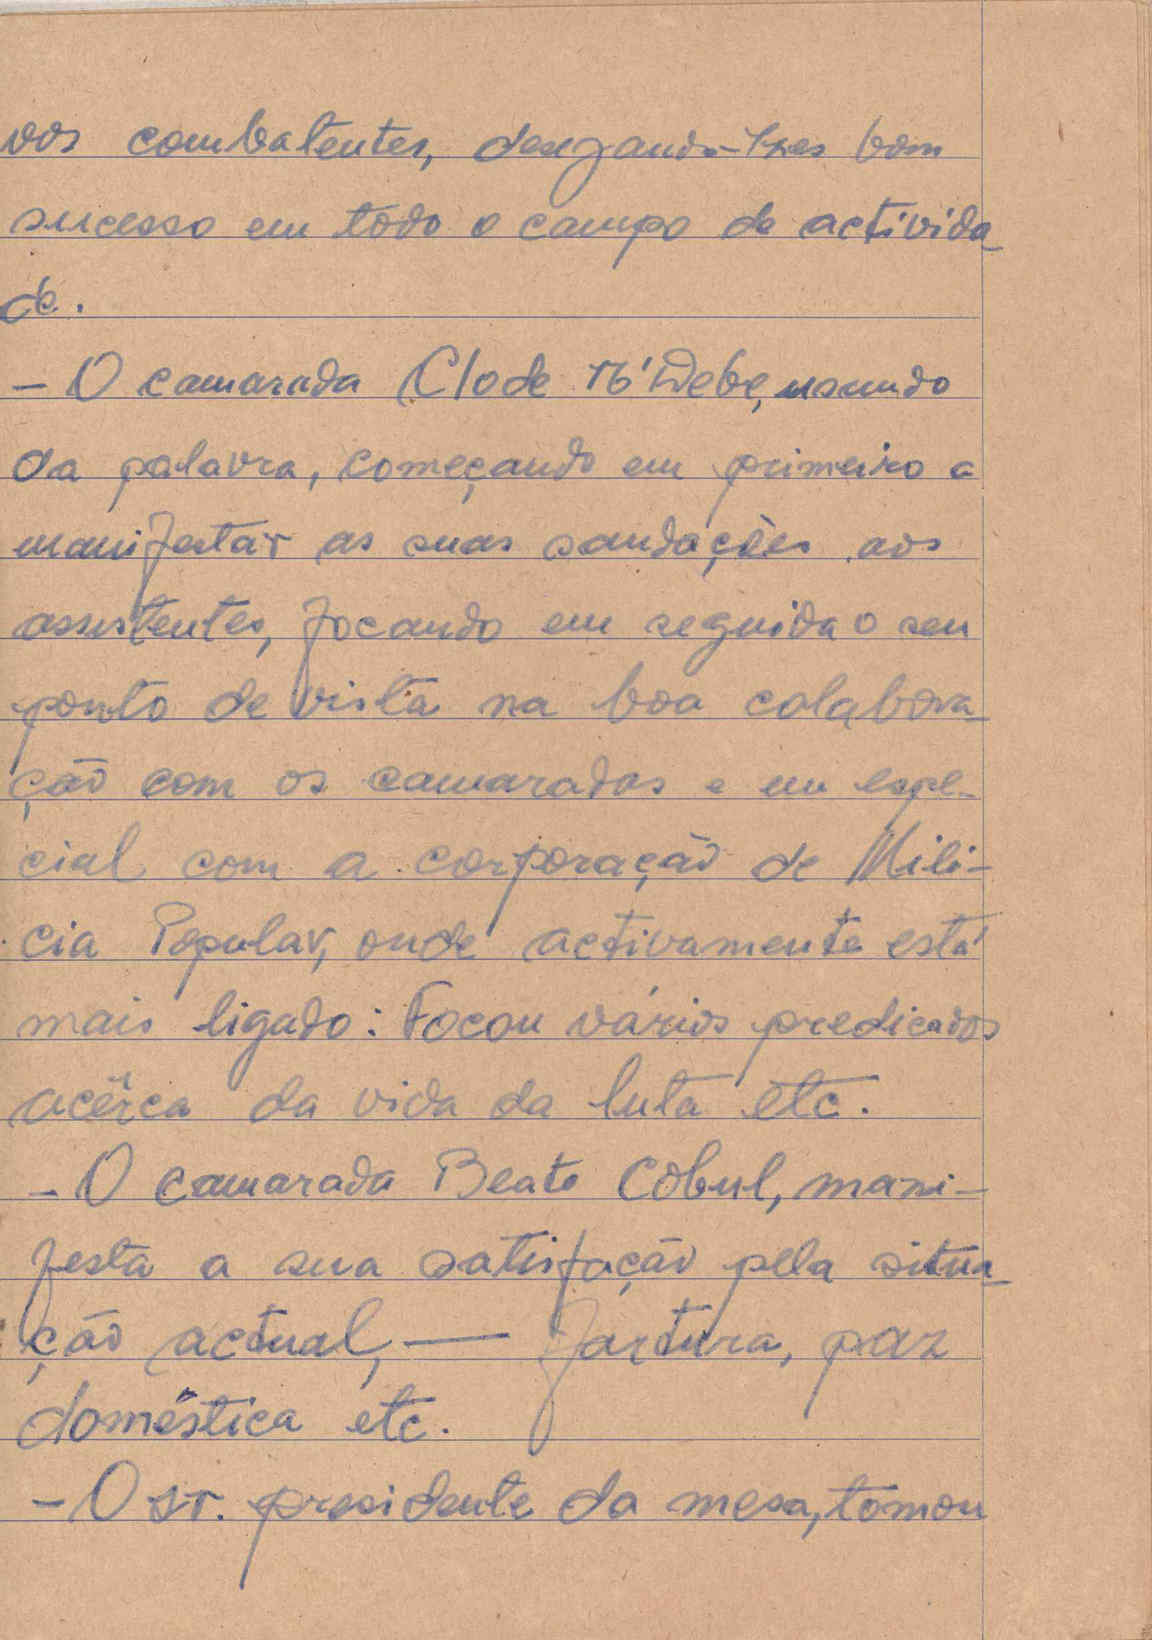 vos combatentes, desejando-lhes bom
sucesso em todo o campo de activida_
de.
- O camarada Clode N'Debe, usando
da palavra, começando em primeiro a
manifestar as suas saudações aos
assistentes, focando em seguida o seu
ponto de vista na boa colabora_
ção com os camaradas e em espe-
cial com a corporação de Milí-
cia Popular, onde activamente está
mais ligado: Focou vários predicados
acêrca da vida da luta etc.
- O camarada Beato Cobul, mani-
festa a sua satisfação pela situa_
ção actual, — fartura, paz
doméstica etc.
- O sr. presidente da mesa, tomou